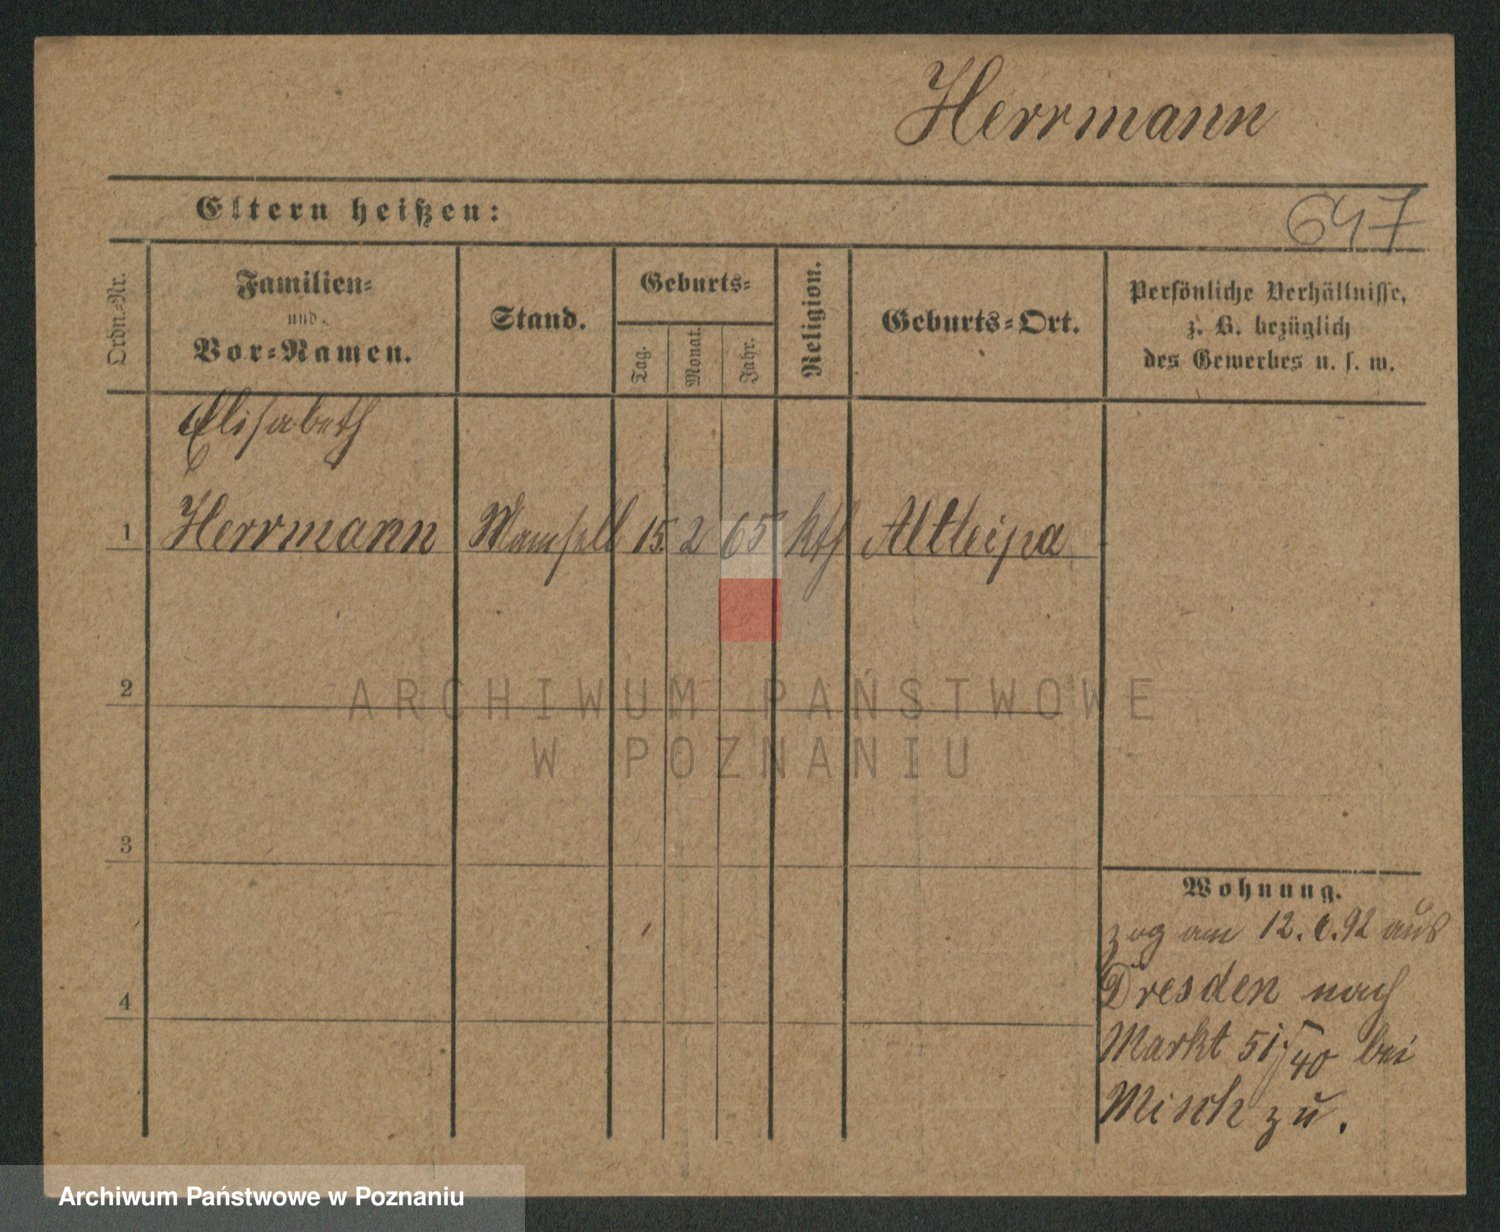 Herrmann
Eltern heißen:
647
Ordn.-Nr.
Familien-
und
Vor-Namen.
Stand.
Geburts-
Tag.
Monat.
Jahr.
Religion.
Geburts-Ort.
Persönliche Verhältnisse,
z. B. bezüglich
des Gewerbes u. s. w.
Elisabeth
1 Herrmann Mamsell 15 2 65 kth Altleipa
2
ARCHIWUM PAŃSTWOWE
W POZNANIU
3
Wohnung.
zog am 12. 6. 92 aus
4 Dresden nach
Markt 51/40 bei
Misch zu.
Archiwum Państwowe w Poznaniu